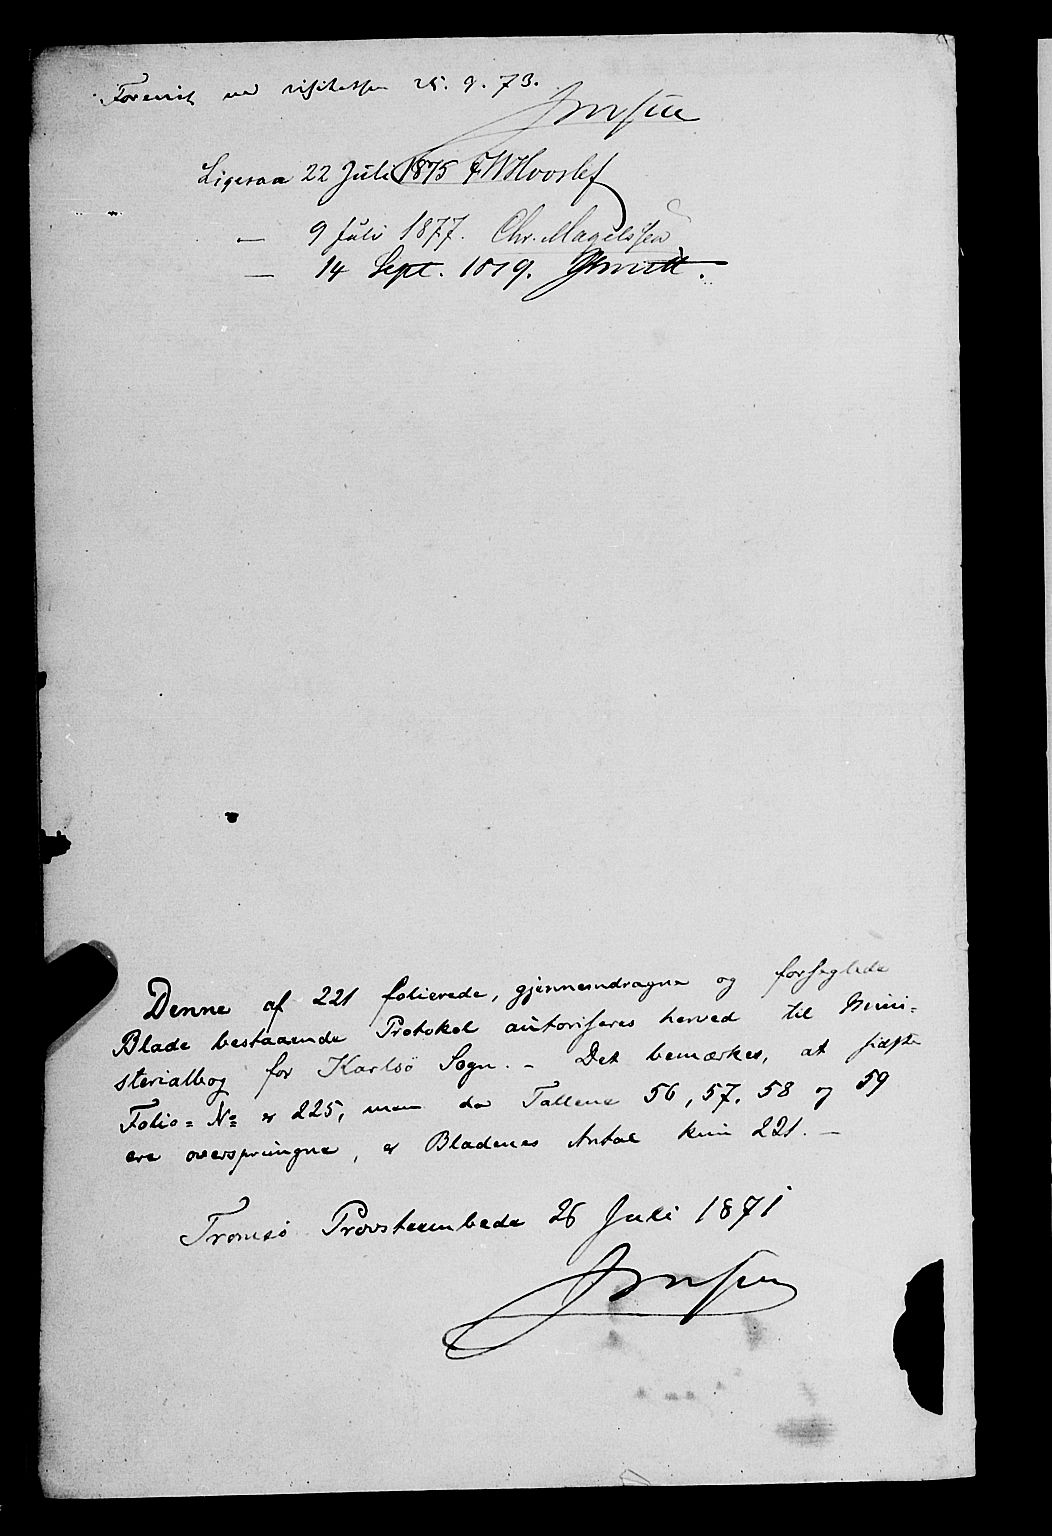 Forevist ved visitatsen 25. 9. 73.
Ligesaa 22 Juli 1875 FWHvoslef
— 9 Juli 1877. Chr. Magelssen
— 14 Sept. 1879. JSmitt.
Denne af 221 folierede, gjennemdragne og forseglede
Blade bestaaende Protokol autoriseres herved til Mini-
sterialbog for Karlsö Sogn. – Det bemærkes, at sidste
Folio= No er 225, men da Tallene 56, 57, 58 og 59
ere oversprungne, er Bladenes Antal kun 221. —
Tromsö Provsteembede 26 Juli 1871